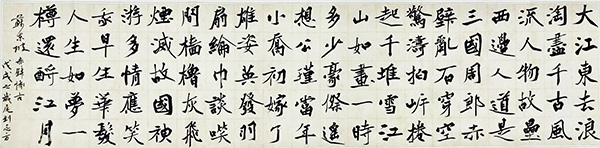 大江東去浪
淘盡千古風
流人物故壘
西邊人道是
三國周郎赤
壁亂石穿空
驚濤拍岸捲
起千堆雪江
山如畫一時
多少豪傑遙
想公瑾當年
小喬初嫁了
雄姿英發羽
扇綸巾談笑
間檣櫓灰飛
煙滅故國神
游多情應笑
我早生華髮
人生如夢一
樽還酹江月
蘇東坡赤壁懷古
戊戌